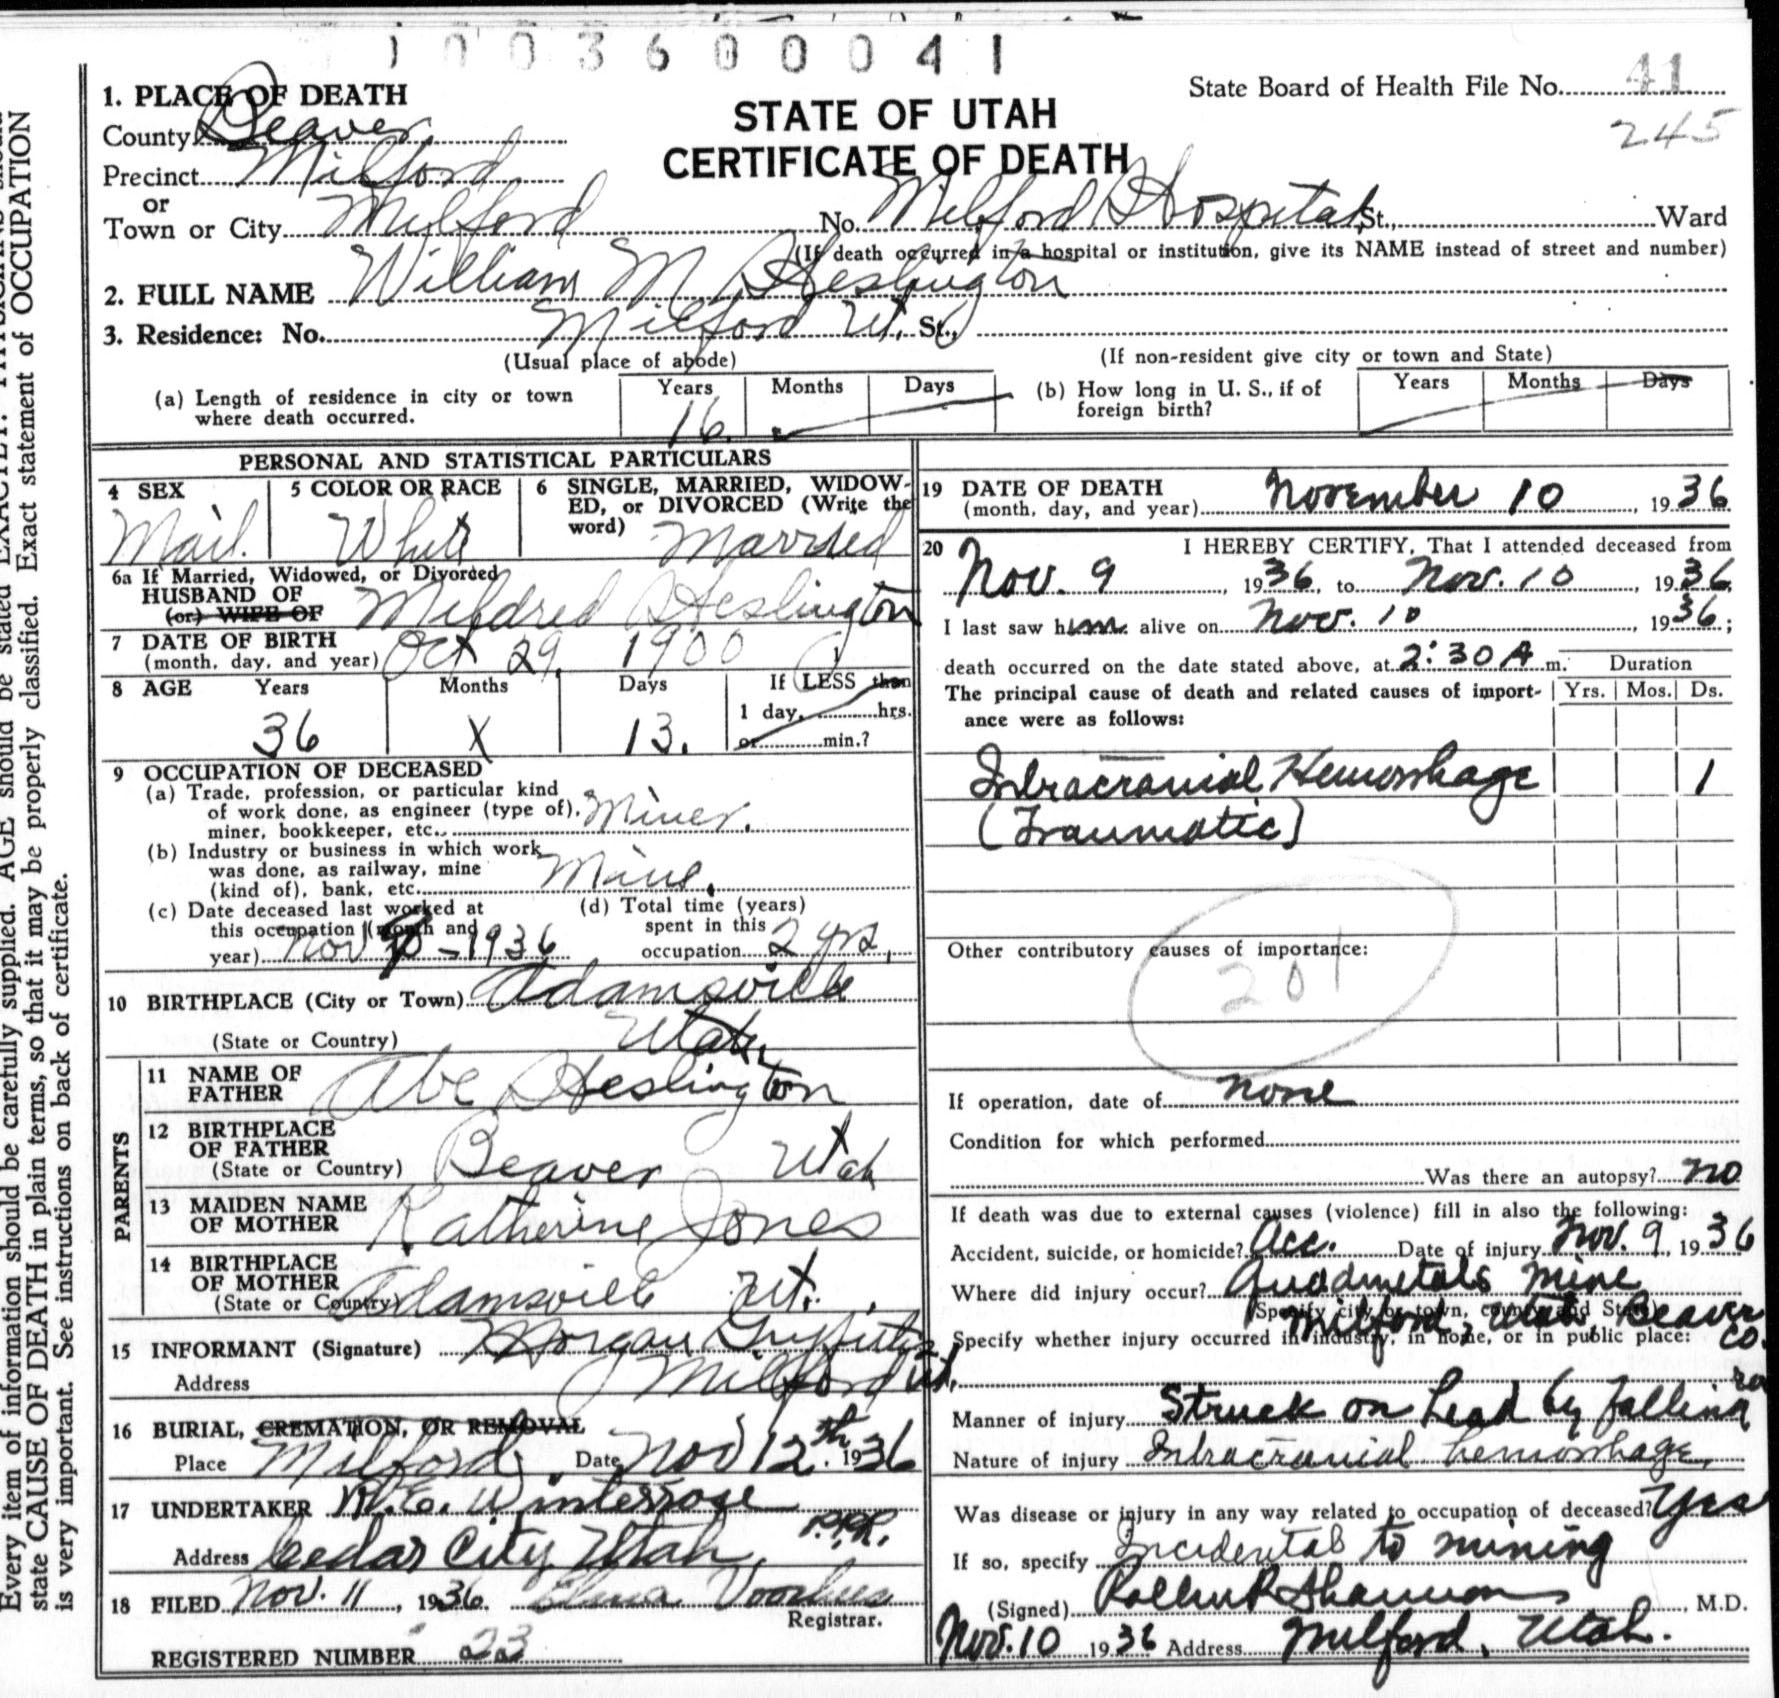 1003600041
1. PLACE OF DEATH
County Beaver
Precinct Milford
or
Town or City Milford No. Milford Hospital St., Ward
State Board of Health File No. 41
245
STATE OF UTAH
CERTIFICATE OF DEATH
(If death occurred in a hospital or institution, give its NAME instead of street and number)
2. FULL NAME William M Heslington
3. Residence: No. Milford Ut. St.,
(Usual place of abode) (If non-resident give city or town and State)
(a) Length of residence in city or town where death occurred. Years 16 Months Days
(b) How long in U. S., if of foreign birth? Years Months Days
PERSONAL AND STATISTICAL PARTICULARS
4 SEX Mail.
5 COLOR OR RACE White
6 SINGLE, MARRIED, WIDOWED, or DIVORCED (Write the word) Married
6a If Married, Widowed, or Divorced
HUSBAND OF Mildred Heslington
(or) WIFE OF
7 DATE OF BIRTH
(month, day, and year) Oct 29, 1900
8 AGE Years Months Days If LESS than
36 X 13. 1 day, hrs.
or min.?
9 OCCUPATION OF DECEASED
(a) Trade, profession, or particular kind
of work done, as engineer (type of), Miner.
miner, bookkeeper, etc.
(b) Industry or business in which work
was done, as railway, mine Mine.
(kind of), bank, etc.
(c) Date deceased last worked at
this occupation (month and
year) Nov 9 - 1936
(d) Total time (years)
spent in this
occupation 2 yrs.
10 BIRTHPLACE (City or Town) Adamsville
(State or Country) Utah
PARENTS
11 NAME OF FATHER Abe Heslington
12 BIRTHPLACE OF FATHER
(State or Country) Beaver Utah
13 MAIDEN NAME OF MOTHER Katherine Jones
14 BIRTHPLACE OF MOTHER
(State or Country) Adamsville Ut.
15 INFORMANT (Signature) Morgan Griffiths
Address Milford Ut.
16 BURIAL, CREMATION, OR REMOVAL
Place Milford Date Nov 12th 1936
17 UNDERTAKER
Address Cedar City Utah.
18 FILED Nov. 11, 1936. Voorhees
Registrar.
REGISTERED NUMBER 23
19 DATE OF DEATH
(month, day, and year) November 10, 1936
20 I HEREBY CERTIFY, That I attended deceased from
Nov. 9, 1936, to Nov. 10, 1936
I last saw him alive on Nov. 10, 1936;
death occurred on the date stated above, at 2:30 A m. Duration
The principal cause of death and related causes of importance were as follows: Yrs. Mos. Ds.
Intracranial Hemorrhage 1
(Traumatic)
Other contributory causes of importance:
201
If operation, date of none
Condition for which performed
Was there an autopsy? no
If death was due to external causes (violence) fill in also the following:
Accident, suicide, or homicide? Acc. Date of injury Nov. 9, 1936
Where did injury occur? Quadmetals Mine
(Specify city or town, county and State)
Milford, Utah Beaver Co.
Specify whether injury occurred in industry, in home, or in public place:
Manner of injury Struck on head by falling
Nature of injury Intracranial hemorrhage
Was disease or injury in any way related to occupation of deceased? Yes
If so, specify Incidental to mining
(Signed) Shannon, M.D.
Nov. 10 1936 Address Milford, Utah.
state CAUSE OF DEATH in plain terms, so that it may be properly classified. Exact statement of OCCUPATION
is very important. See instructions on back of certificate.
Every item of information should be carefully supplied. AGE should be stated EXACTLY.